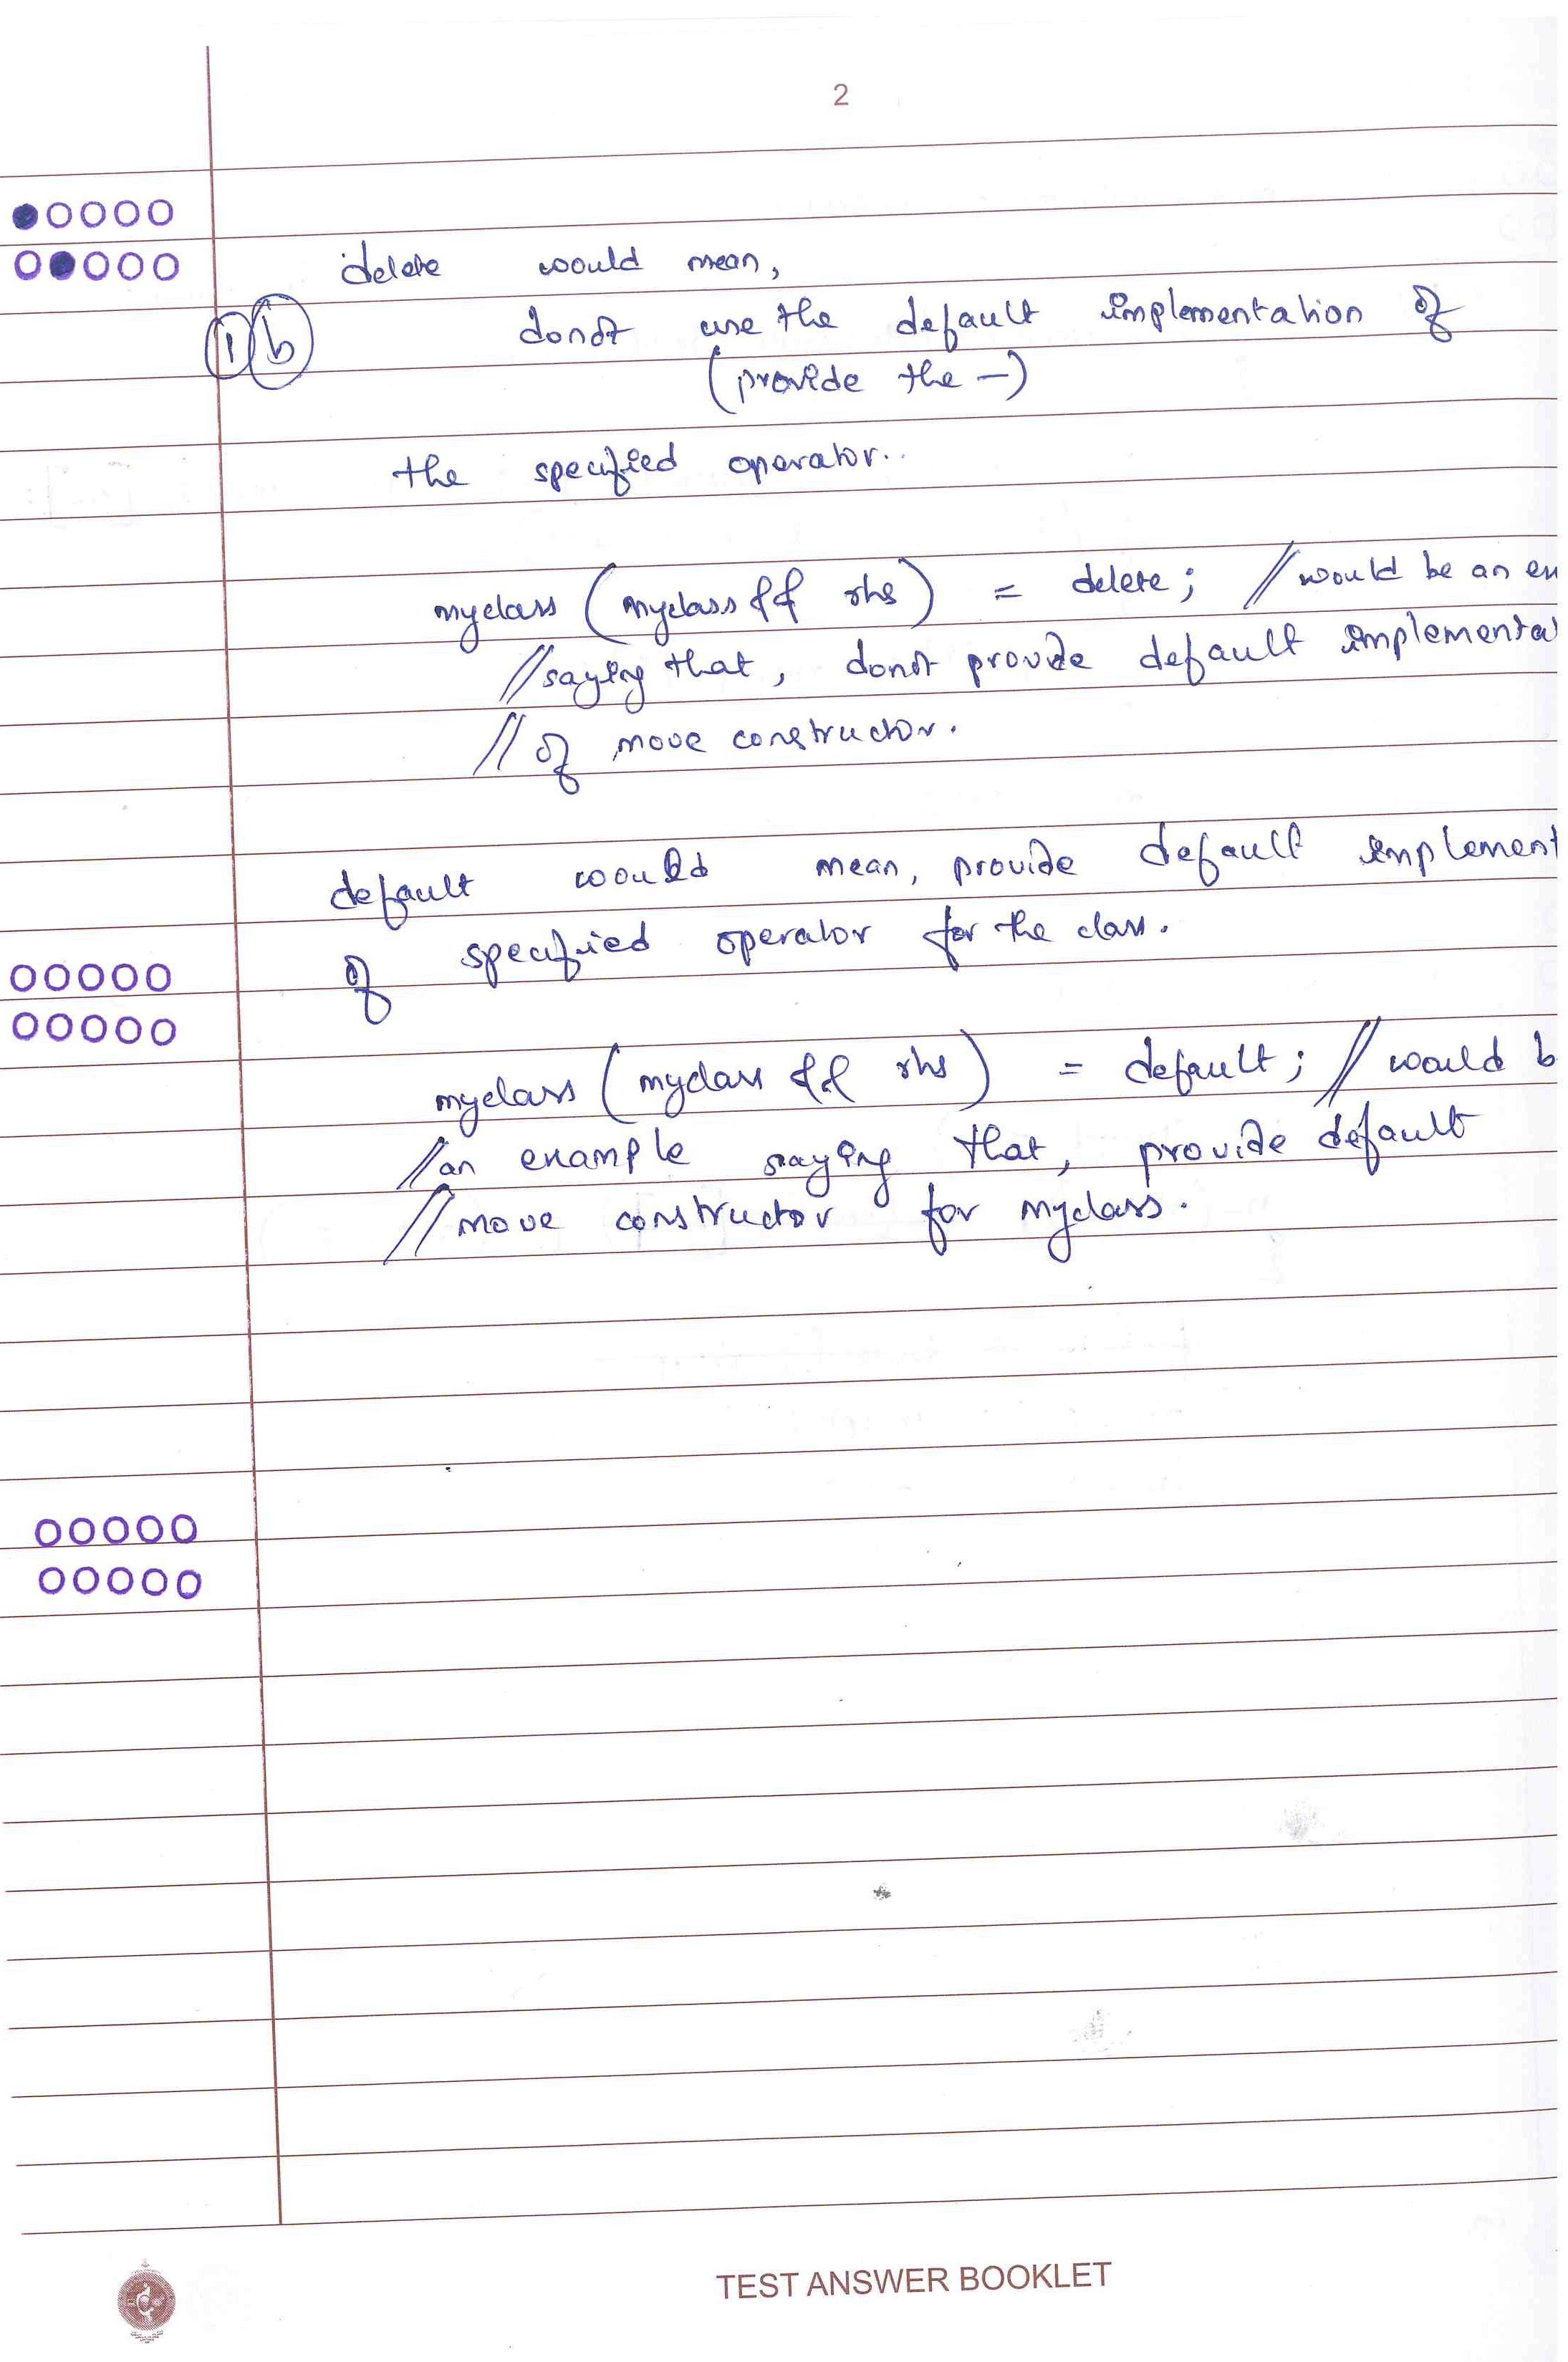 2
delete would mean,
1 b
donot use the default implementation of
(provide the —)
the specified operator..
myclass (myclass && rhs) = delete; // would be an
// saying that, donot provide default implementa
// of move constructor.
default would mean, provide default implement
of specified operator for the class.
myclass (myclass && rhs) = default; // would b
// an example saying that, provide default
// move constructor for myclass.
TEST ANSWER BOOKLET